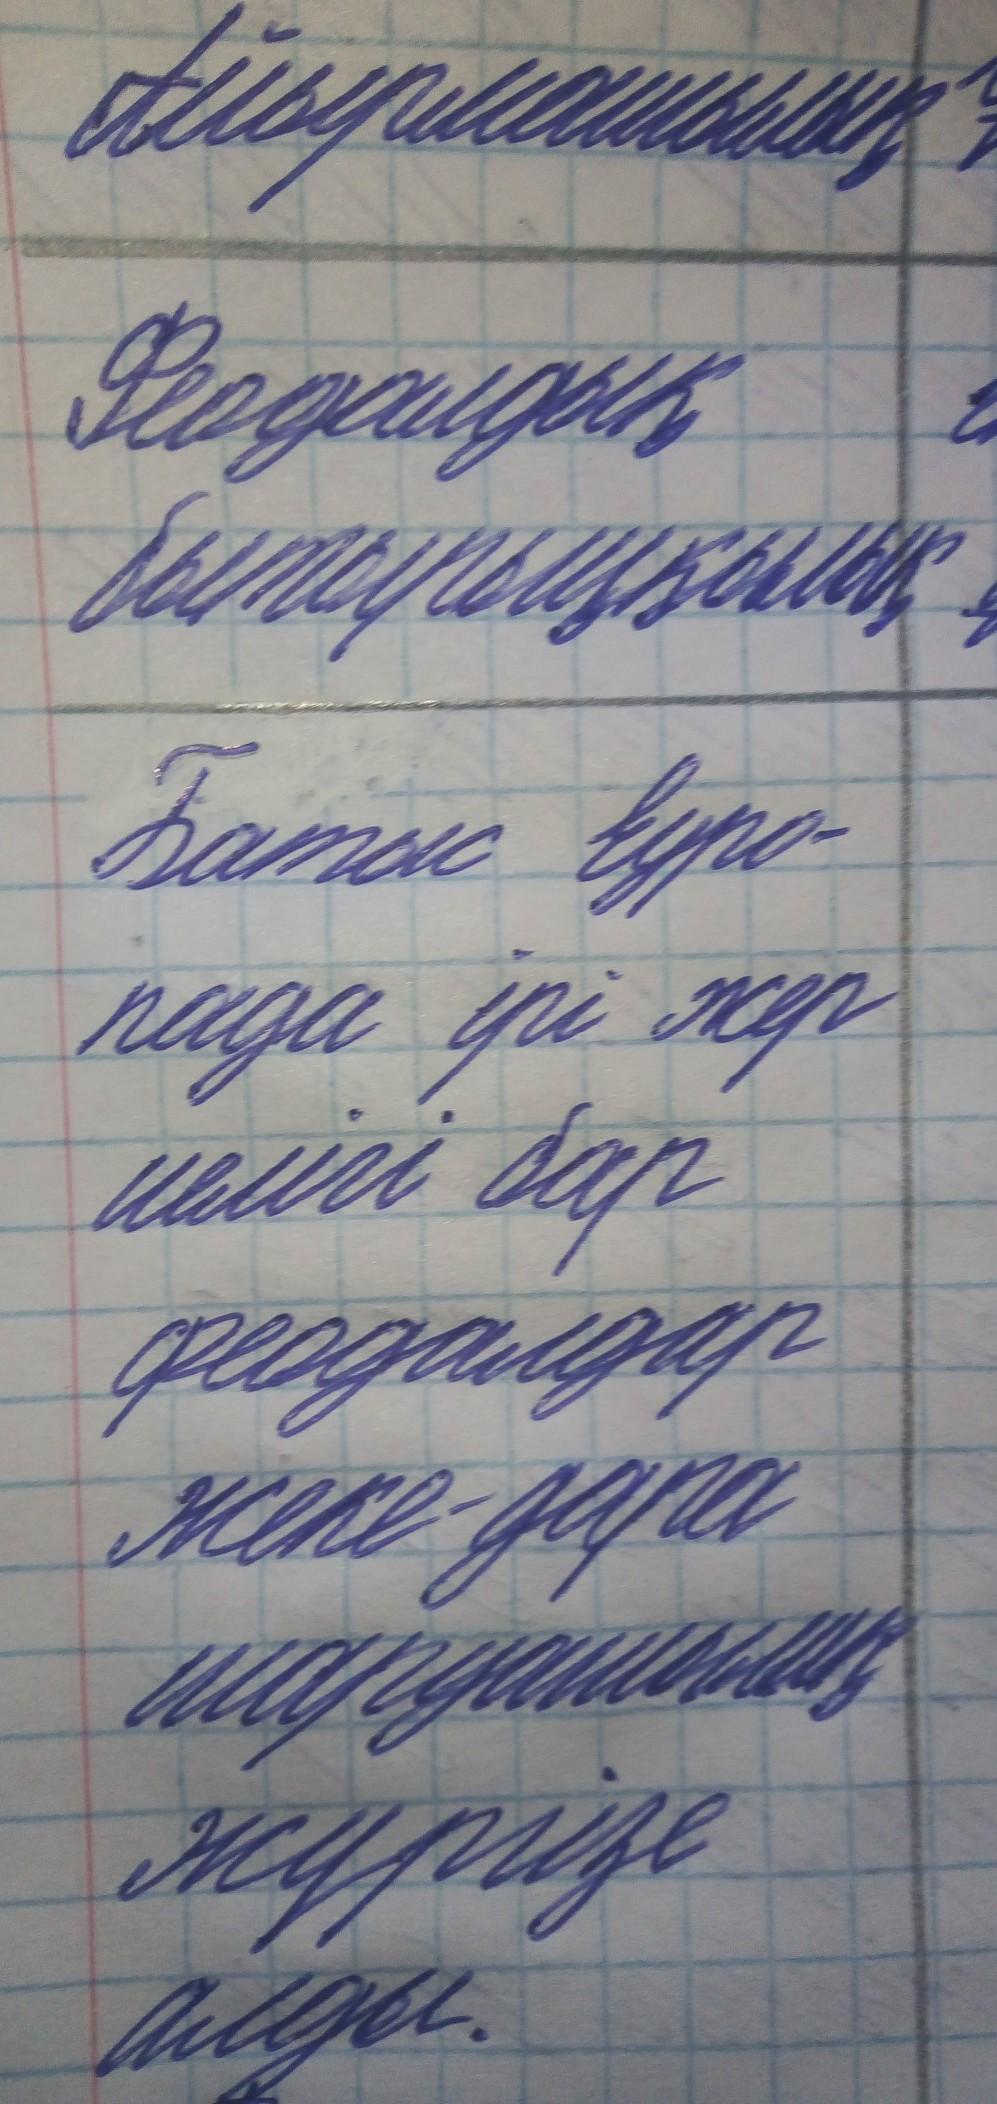 Айырмашылық
Феодалдық
бытыраңқылық
Батыс Еуро-
пада ірі жер
иелігі бар
феодалдар
жеке-дара
шаруашылық
жүргізе
алды.